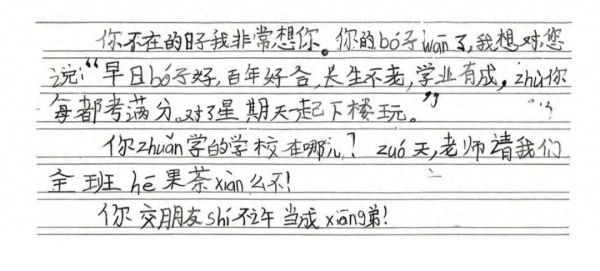 你不在的日子我非常想你。你的bó子wān了,我想对您
说:“早日bó子好,百年好合,长生不老,学业有成,zhù你
每都考满分。对了星期天一起下楼玩。”
你zhuǎn学的学校在哪儿?zuó天,老师请我们
全班hē果茶xiàn么不!
你交朋友shí不许当成xiōng弟!